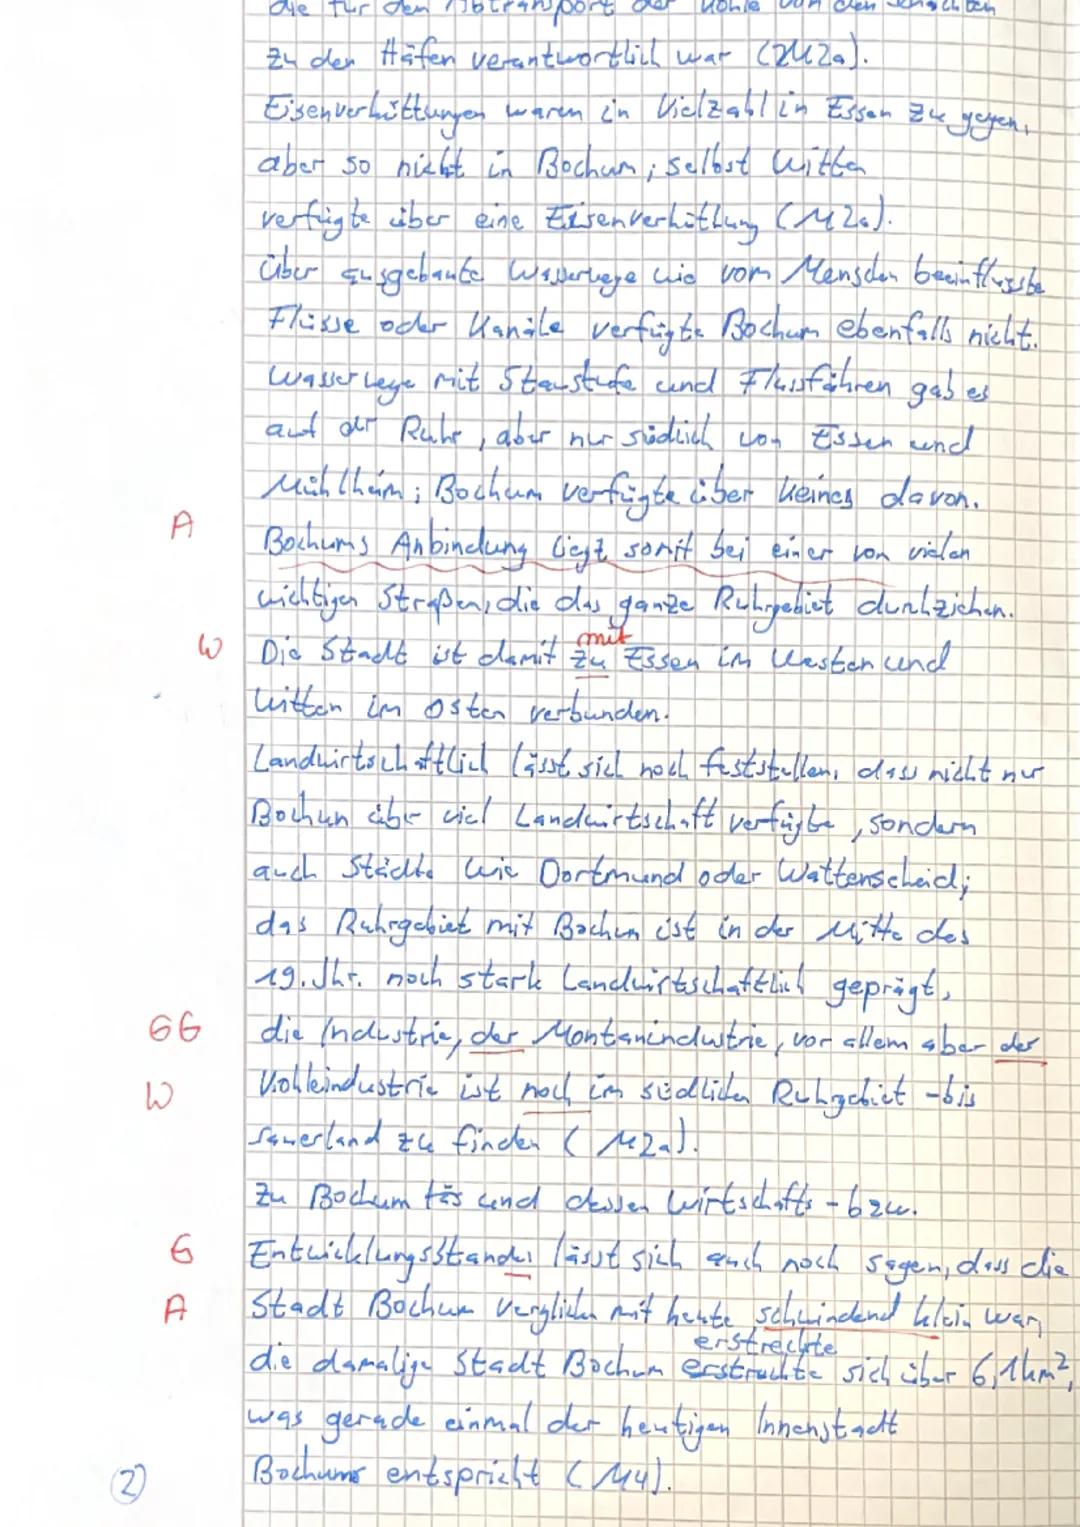 die für den Abtransport der Kohle von den Schächten
zu den Häfen verantwortlich war (M2a).
Eisenverhüttungen waren in Vielzahl in Essen zu gegen,
aber so nicht in Bochum; selbst Witten
verfügte über eine Eisenverhüttung (M2a).
Über ausgebaute Wasserwege wie vom Menschen beeinflusste
Flüsse oder Kanäle verfügte Bochum ebenfalls nicht.
Wasserwege mit Staustufe und Flussfähren gab es
auf der Ruhr, aber nur südlich von Essen und
Mühlheim; Bochum verfügte über keines davon.
A Bochums Anbindung liegt somit bei einer von vielen
wichtigen Straßen, die das ganze Ruhrgebiet durchziehen.
mit
W Die Stadt ist damit zu Essen im Westen und
Witten im Osten verbunden.
Landwirtschaftlich lässt sich noch feststellen, dass nicht nur
Bochum über viel Landwirtschaft verfügte, sondern
auch Städte wie Dortmund oder Wattenscheid;
das Ruhrgebiet mit Bochum ist in der Mitte des
19. Jhr. noch stark Landwirtschaftlich geprägt,
GG die Industrie, der Montanindustrie, vor allem aber der
W Kohleindustrie ist noch im südlichen Ruhrgebiet - bis
Sauerland zu finden (M2a).
Zu Bochum und dessen Wirtschafts - bzw.
G Entwicklungsstandes lässt sich auch noch sagen, dass die
A Stadt Bochum verglichen mit heute schwindend klein war,
erstreckte
die damalige Stadt Bochum erstreckte sich über 6,1km²,
was gerade einmal der heutigen Innenstadt
② Bochums entspricht (M4).